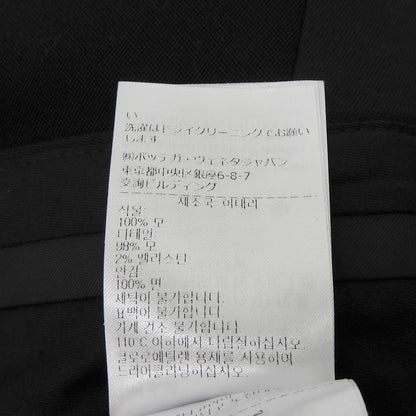 い
洗濯はドライクリーニングでお願い
します
㈱ボッテガ・ヴェネタジャパン
東京都中央区銀座6-8-7
交詢ビルディング
제조국 이태리
직물:
100% 모
디테일:
98% 모
2% 엘라스틴
안감:
100% 면
세탁이 불가합니다.
표백이 불가합니다.
기계 건조 불가합니다.
110°C 이하에서 다림질하십시오.
클로로에틸렌 용제를 사용하여
드라이클리닝하십시오